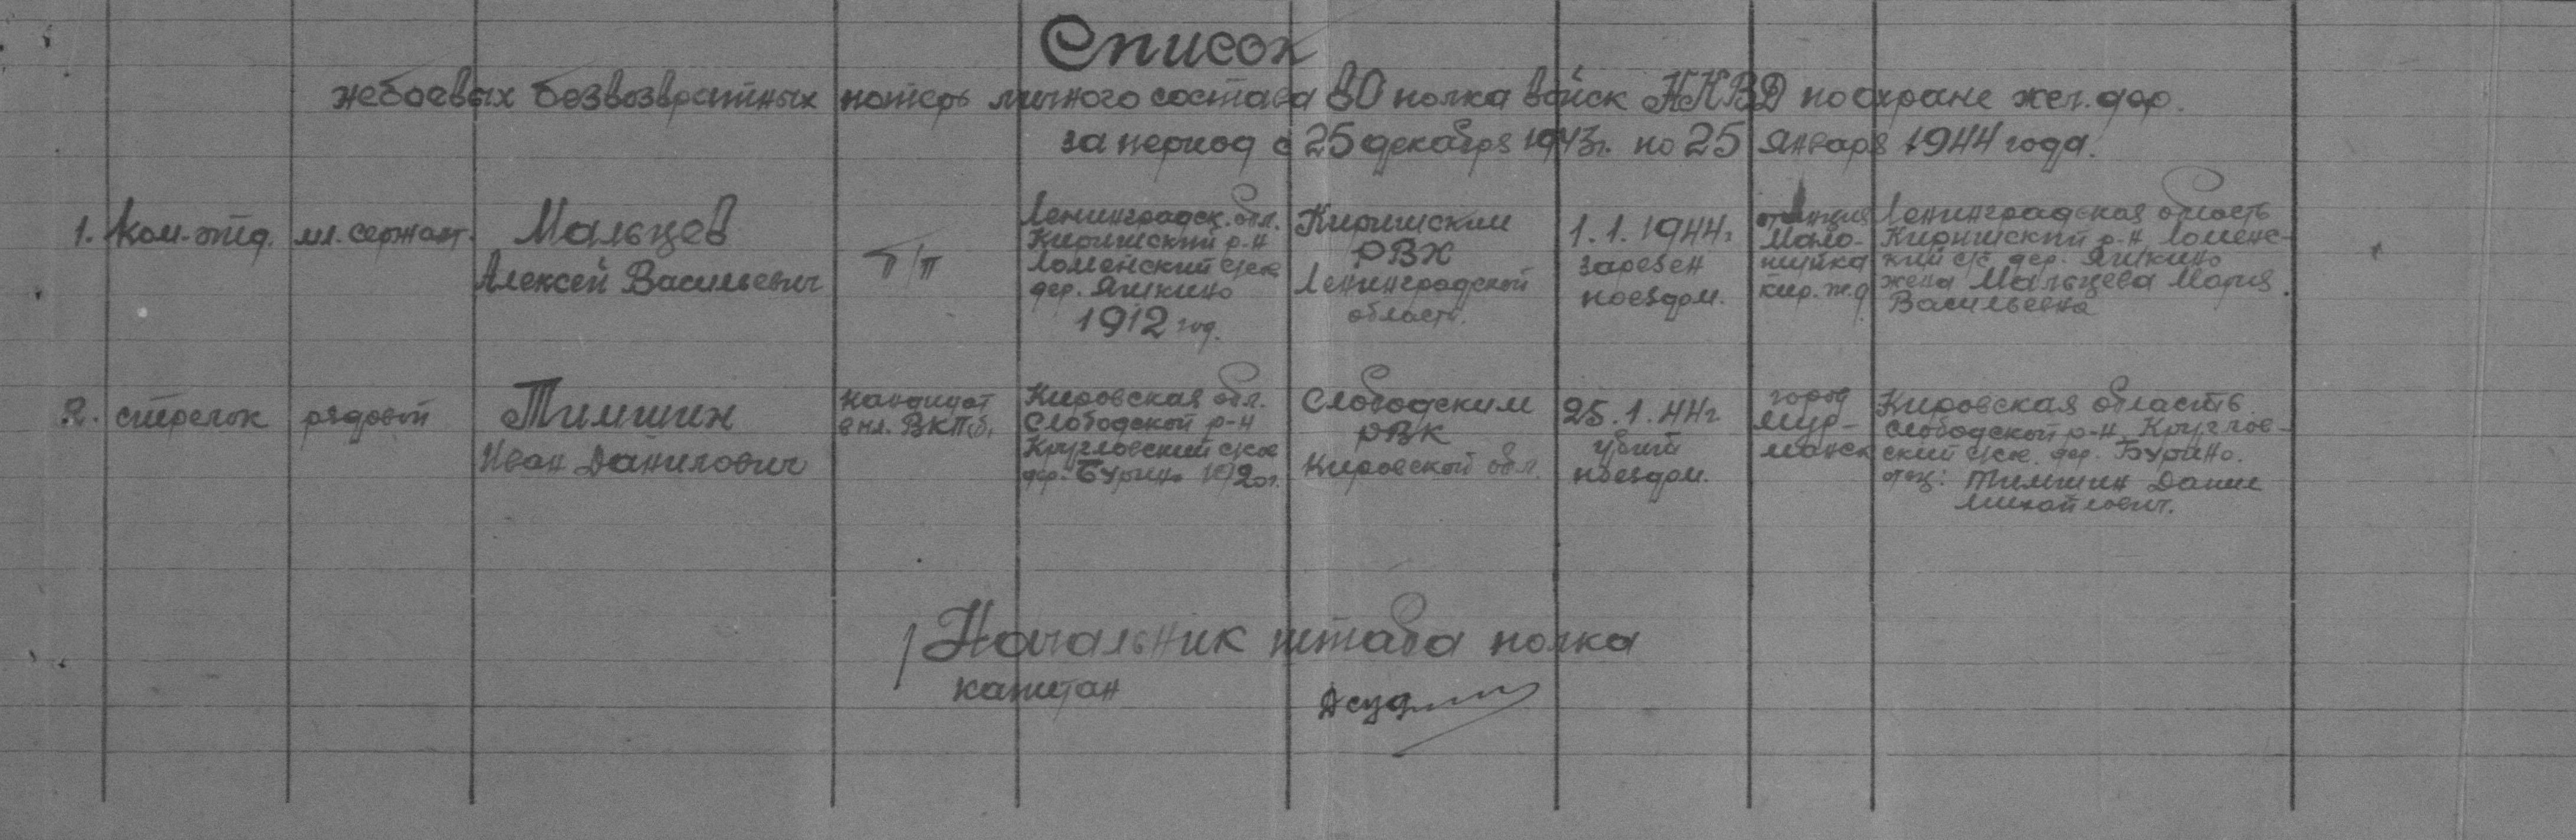 Список
небоевых безвозвратных потерь личного состава 80 полка войск НКВД по охране жел. дор.
за период с 25 декабря 1943г. по 25 января 1944 года.
1. Ком. отд. мл. сержант. Мальцев
Алексей Васильевич
б/п
Ленинградск. обл.
Киришский р-н
дер. Яшкино
1912 год.
Киришским
РВК
Ленинградской
области.
1.1.1944г
зарезан
поездом.
станция
Мало-
шуйка
Кир. ж.д
Ленинградская область
Киришский р-н,
с/с дер. Яшкино
жена Мальцева Мария
Васильевна
2. стрелок рядовой Тимшин
Иван Данилович
кандидат
в чл. ВКПб,
Кировская обл.
Слободской р-н
Кругловский с/сов
дер. Бурино
Слободским
РВК
Кировской обл.
25.1.44г
убит
поездом.
город
Мур-
манск
Кировская область
Слободской р-н, Круглов-
ский с/сов. дер. Бурино.
отец: Тимшин Данил
Михайлович.
Начальник штаба полка
капитан